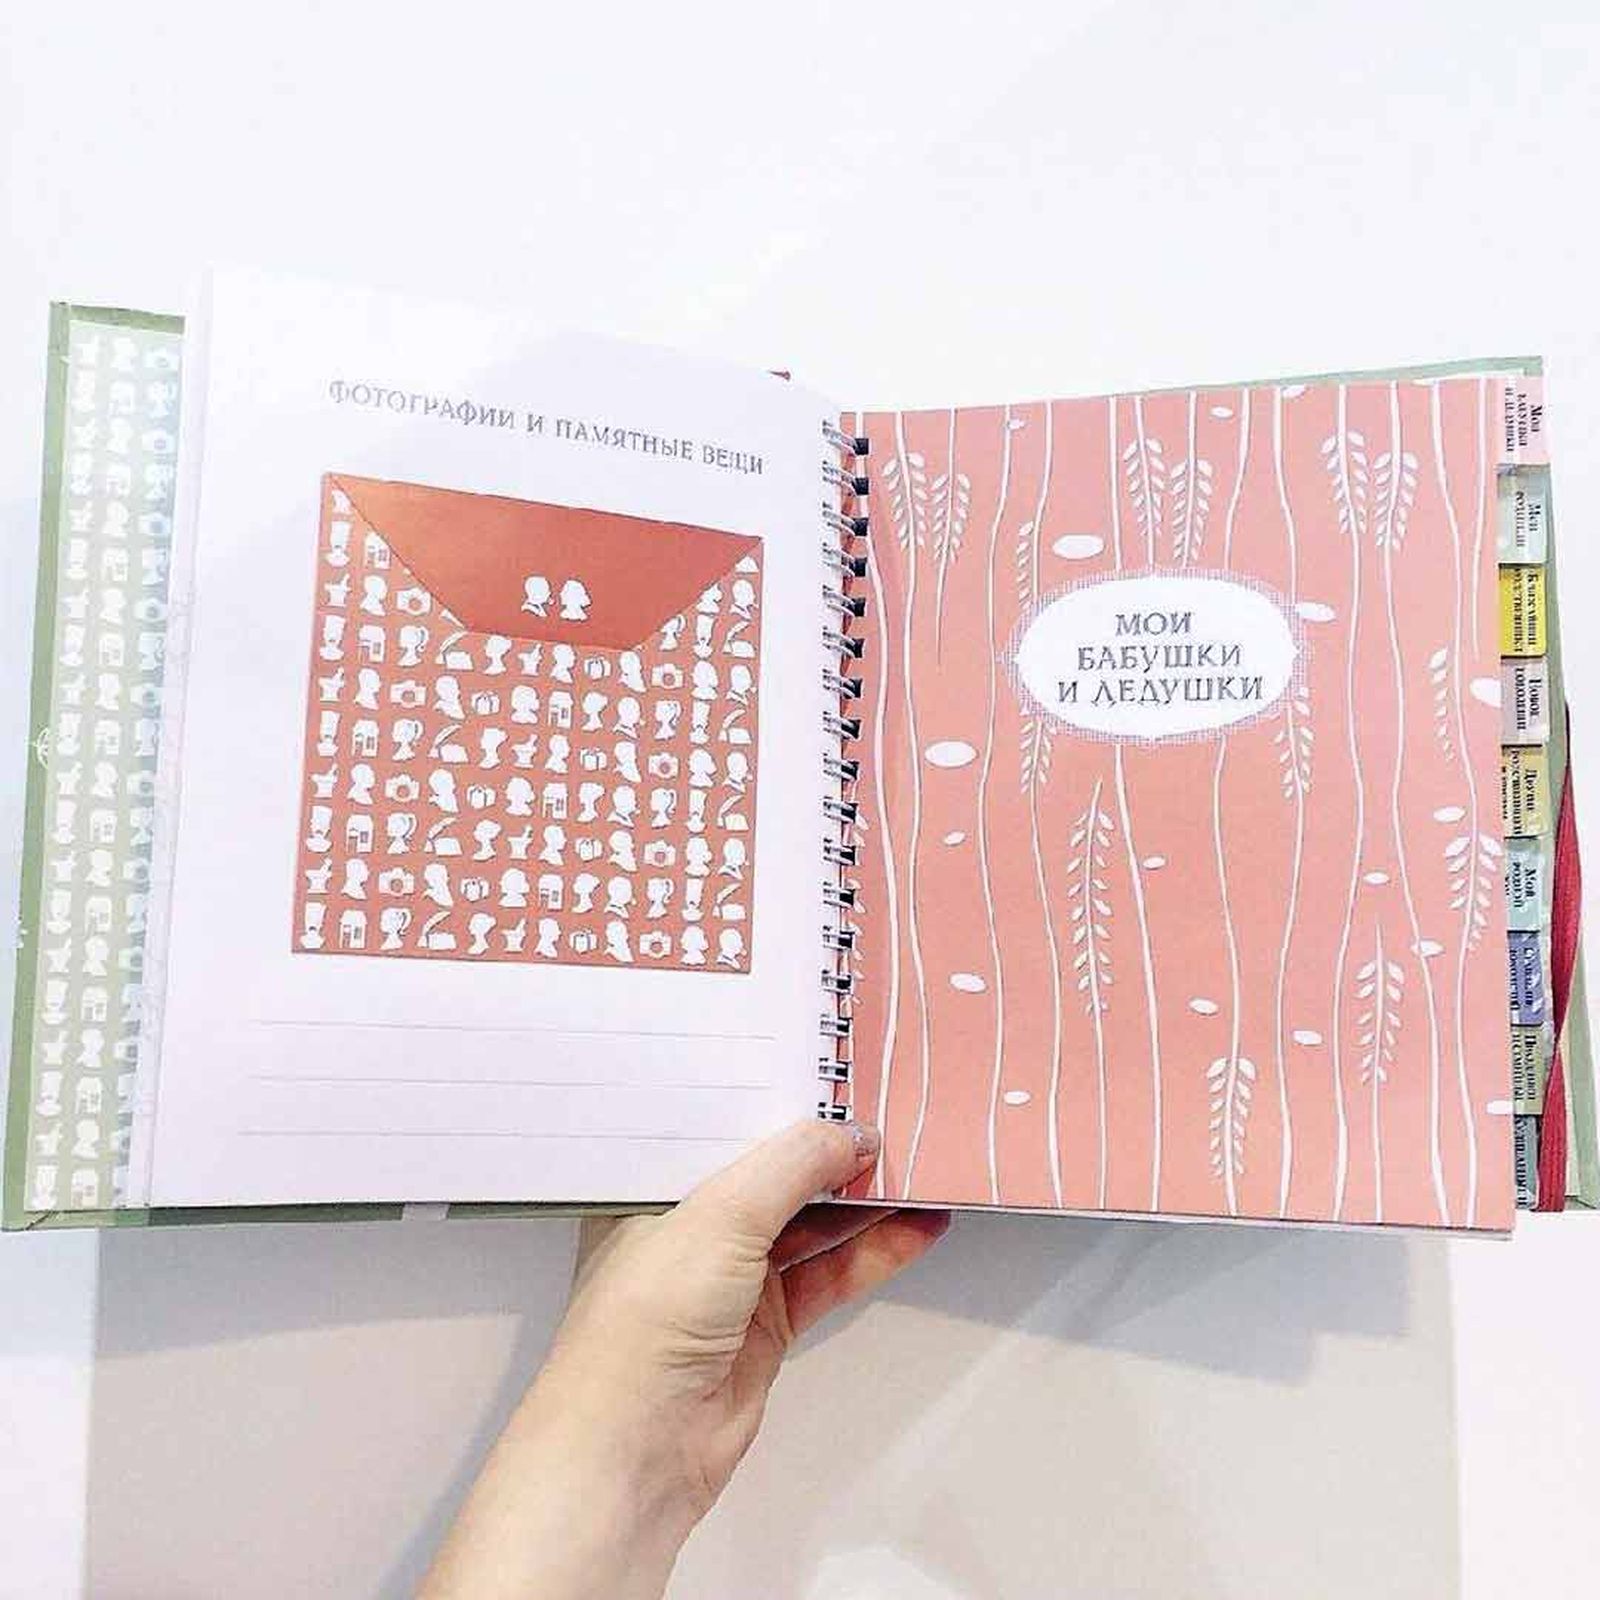 ФОТОГРАФИИ И ПАМЯТНЫЕ ВЕЩИ
МОИ
БАБУШКИ
И ДЕДУШКИ
Мои
бабушки
и дедушки
Мои
родители
Ближайшие
родственники
Новое
поколение
Другие
родственники
Мой
родной
События
Праздники